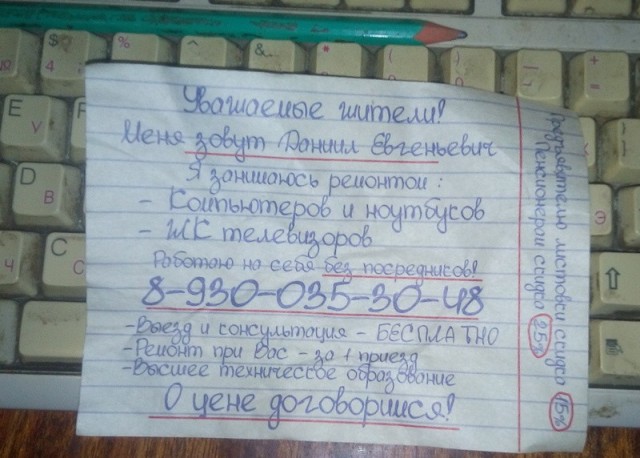 Уважаемые жители!
Меня зовут Даниил Евгеньевич
Я занимаюсь ремонтом:
- Компьютеров и ноутбуков
- ЖК телевизоров
Работаю на себя без посредников!
8-930-035-30-48
- Выезд и консультация - БЕСПЛАТНО
- Ремонт при Вас - за 1 приезд
- Высшее техническое образование
О цене договоримся!
Предъявителю листовки скидка 15%
Пенсионерам скидка 25%
$ 4
%
^
&
*
(
)
+ =
E У
D В
C С
Э